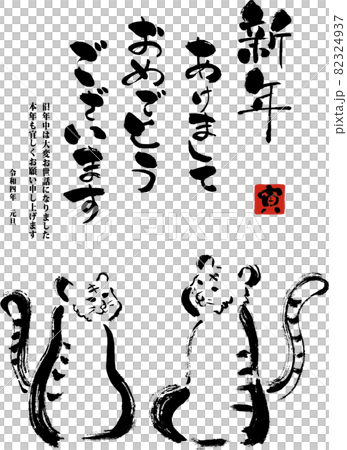 新年
あけまして
おめでとう
ございます
寅
旧年中は大変お世話になりました
本年も宜しくお願い申し上げます
令和四年 元旦
PIXTA
pixta.jp - 82324937